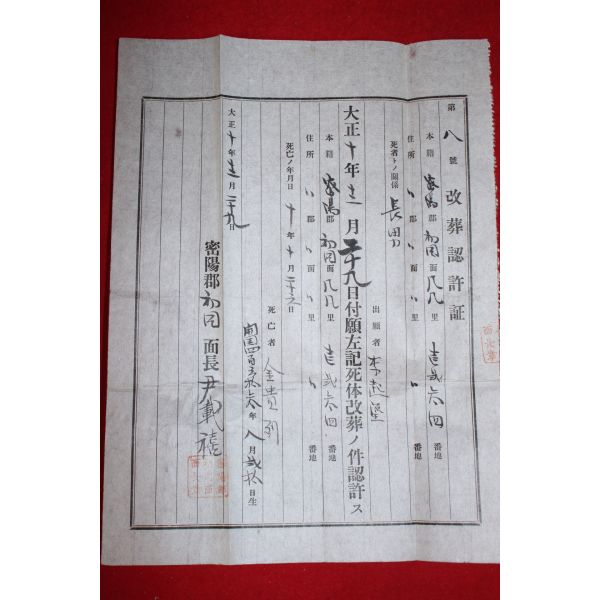 第八號 改葬認許証
本籍 密陽郡 初同面 凡凡里 壱弐六四番地
住所 〃郡 〃面 〃里 〃番地
死者トノ關係 長男 出願者 李起
大正十年十二月二十九日付願左記死体改葬ノ件認許ス
本籍 密陽郡 初同面 凡凡里 壱弐六四番地
住所 〃郡 〃面 〃里 〃番地
死亡ノ年月日 十年十月二十 日
死亡者 金貴
開国四百 年八月弐拾日生
大正十年十二月二十九日
密陽郡初同面長 尹載禧